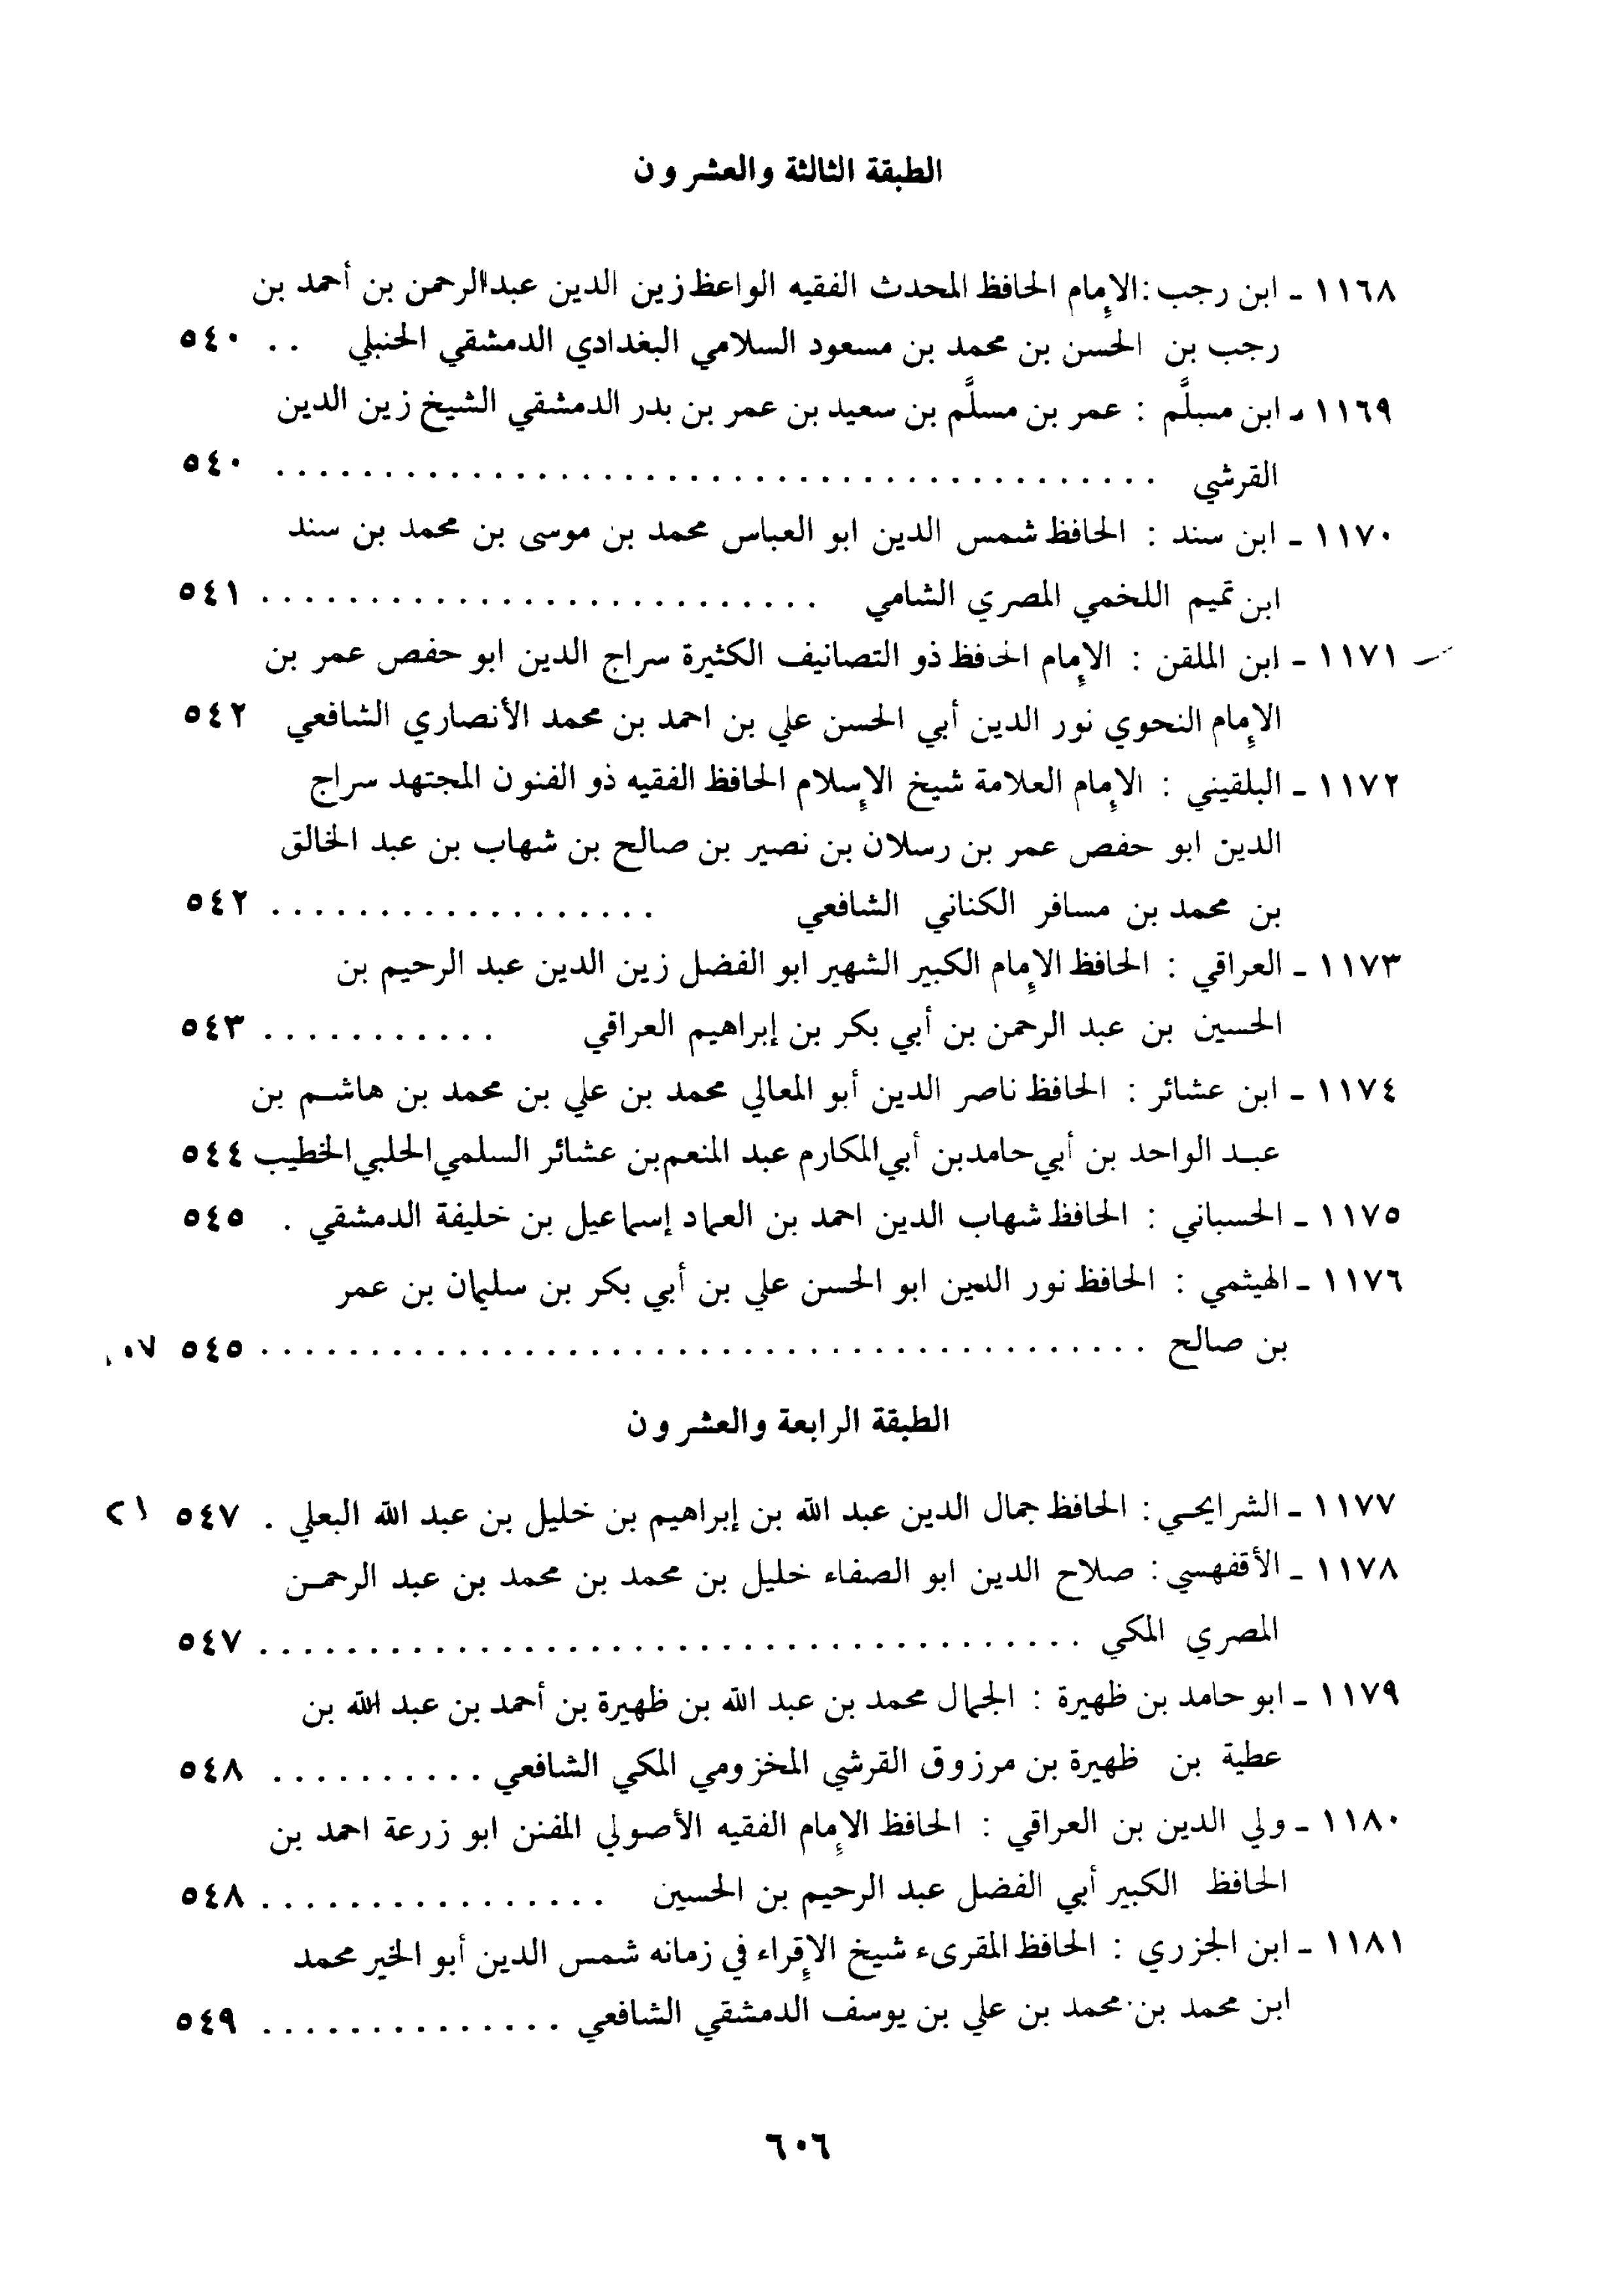 الطبقة الثالثة والعشرون
١١٦٨ - ابن رجب : الإمام الحافظ المحدث الفقيه الواعظ زين الدين عبدالرحمن بن أحمد بن
رجب بن الحسن بن محمد بن مسعود السلامي البغدادي الدمشقي الحنبلي . . ٥٤٠
١١٦٩ - ابن مسلَّم : عمر بن مسلَّم بن سعيد بن عمر بن بدر الدمشقي الشيخ زين الدين
القرشي . . . . . . . . . . . . . . . . . . . . ٥٤٠
١١٧٠ - ابن سند : الحافظ شمس الدين ابو العباس محمد بن موسى بن محمد بن سند
ابن تميم اللخمي المصري الشامي . . . . . . . . . . . . . . . . ٥٤١
١١٧١ - ابن الملقن : الإمام الحافظ ذو التصانيف الكثيرة سراج الدين ابو حفص عمر بن
الإمام النحوي نور الدين أبي الحسن علي بن احمد بن محمد الأنصاري الشافعي ٥٤٢
١١٧٢ - البلقيني : الإمام العلامة شيخ الإسلام الحافظ الفقيه ذو الفنون المجتهد سراج
الدين ابو حفص عمر بن رسلان بن نصير بن صالح بن شهاب بن عبد الخالق
بن محمد بن مسافر الكناني الشافعي . . . . . . . . . . . . ٥٤٢
١١٧٣ - العراقي : الحافظ الإمام الكبير الشهير ابو الفضل زين الدين عبد الرحيم بن
الحسين بن عبد الرحمن بن أبي بكر بن إبراهيم العراقي . . . . . . . . . . . ٥٤٣
١١٧٤ - ابن عشائر : الحافظ ناصر الدين أبو المعالي محمد بن علي بن محمد بن هاشم بن
عبد الواحد بن أبي حامد بن أبي المكارم عبد المنعم بن عشائر السلمي الحلبي الخطيب ٥٤٤
١١٧٥ - الحسباني : الحافظ شهاب الدين احمد بن العماد إسماعيل بن خليفة الدمشقي . ٥٤٥
١١٧٦ - الهيثمي : الحافظ نور الدين ابو الحسن علي بن أبي بكر بن سليمان بن عمر
بن صالح . . . . . . . . . . . . . . . . . . . . ٥٤٥
الطبقة الرابعة والعشرون
١١٧٧ - الشرايحي : الحافظ جمال الدين عبد الله بن إبراهيم بن خليل بن عبد الله البعلي . ٥٤٧
١١٧٨ - الأقفهسي : صلاح الدين ابو الصفاء خليل بن محمد بن محمد بن عبد الرحمن
المصري المكي . . . . . . . . . . . . . . . . . . . . ٥٤٧
١١٧٩ - ابو حامد بن ظهيرة : الجمال محمد بن عبد الله بن ظهيرة بن أحمد بن عبد الله بن
عطية بن ظهيرة بن مرزوق القرشي المخزومي المكي الشافعي . . . . . . . . . . ٥٤٨
١١٨٠ - ولي الدين بن العراقي : الحافظ الإمام الفقيه الأصولي المفنن ابو زرعة احمد بن
الحافظ الكبير أبي الفضل عبد الرحيم بن الحسين . . . . . . . . . . . . . . . . ٥٤٨
١١٨١ - ابن الجزري : الحافظ المقرىء شيخ الإقراء في زمانه شمس الدين أبو الخير محمد
ابن محمد بن محمد بن علي بن يوسف الدمشقي الشافعي . . . . . . . . . . . . . . ٥٤٩
٦٠٦